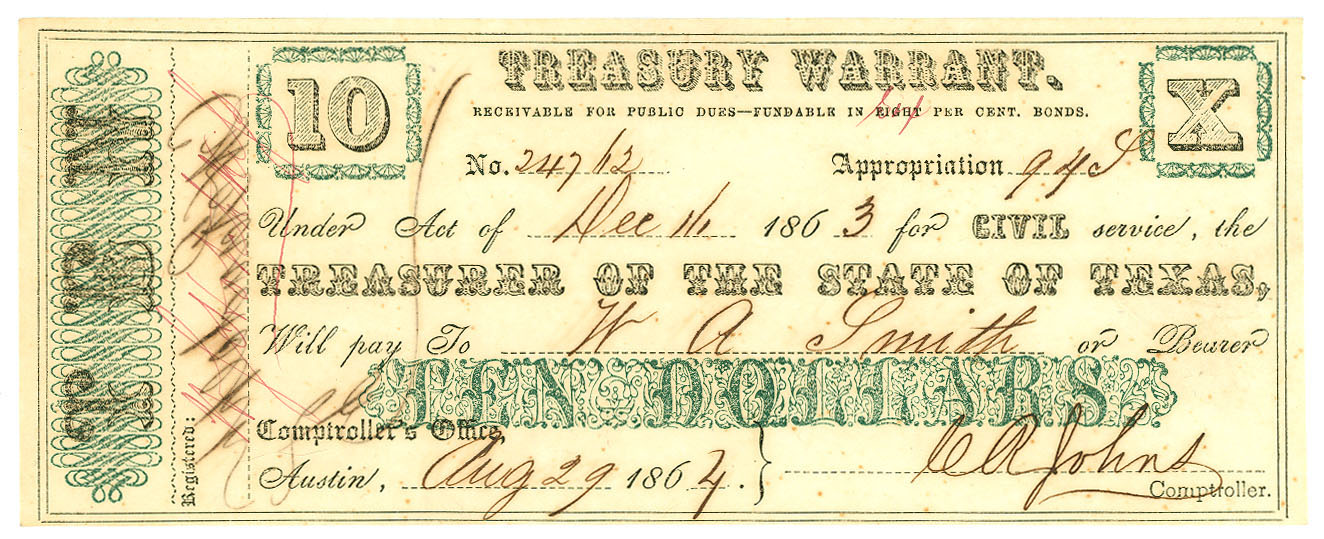 TEN
Registered:
10
TREASURY WARRANT.
X
RECEIVABLE FOR PUBLIC DUES—FUNDABLE IN EIGHT PER CENT. BONDS.
No. 24762 Appropriation 94
Under Act of Dec 16 1863 for CIVIL service, the
TREASURER OF THE STATE OF TEXAS,
Will pay To W A Smith or Bearer
TEN DOLLARS
Comptroller's Office,
Austin, Aug 29 1864.
C R Johns
Comptroller.